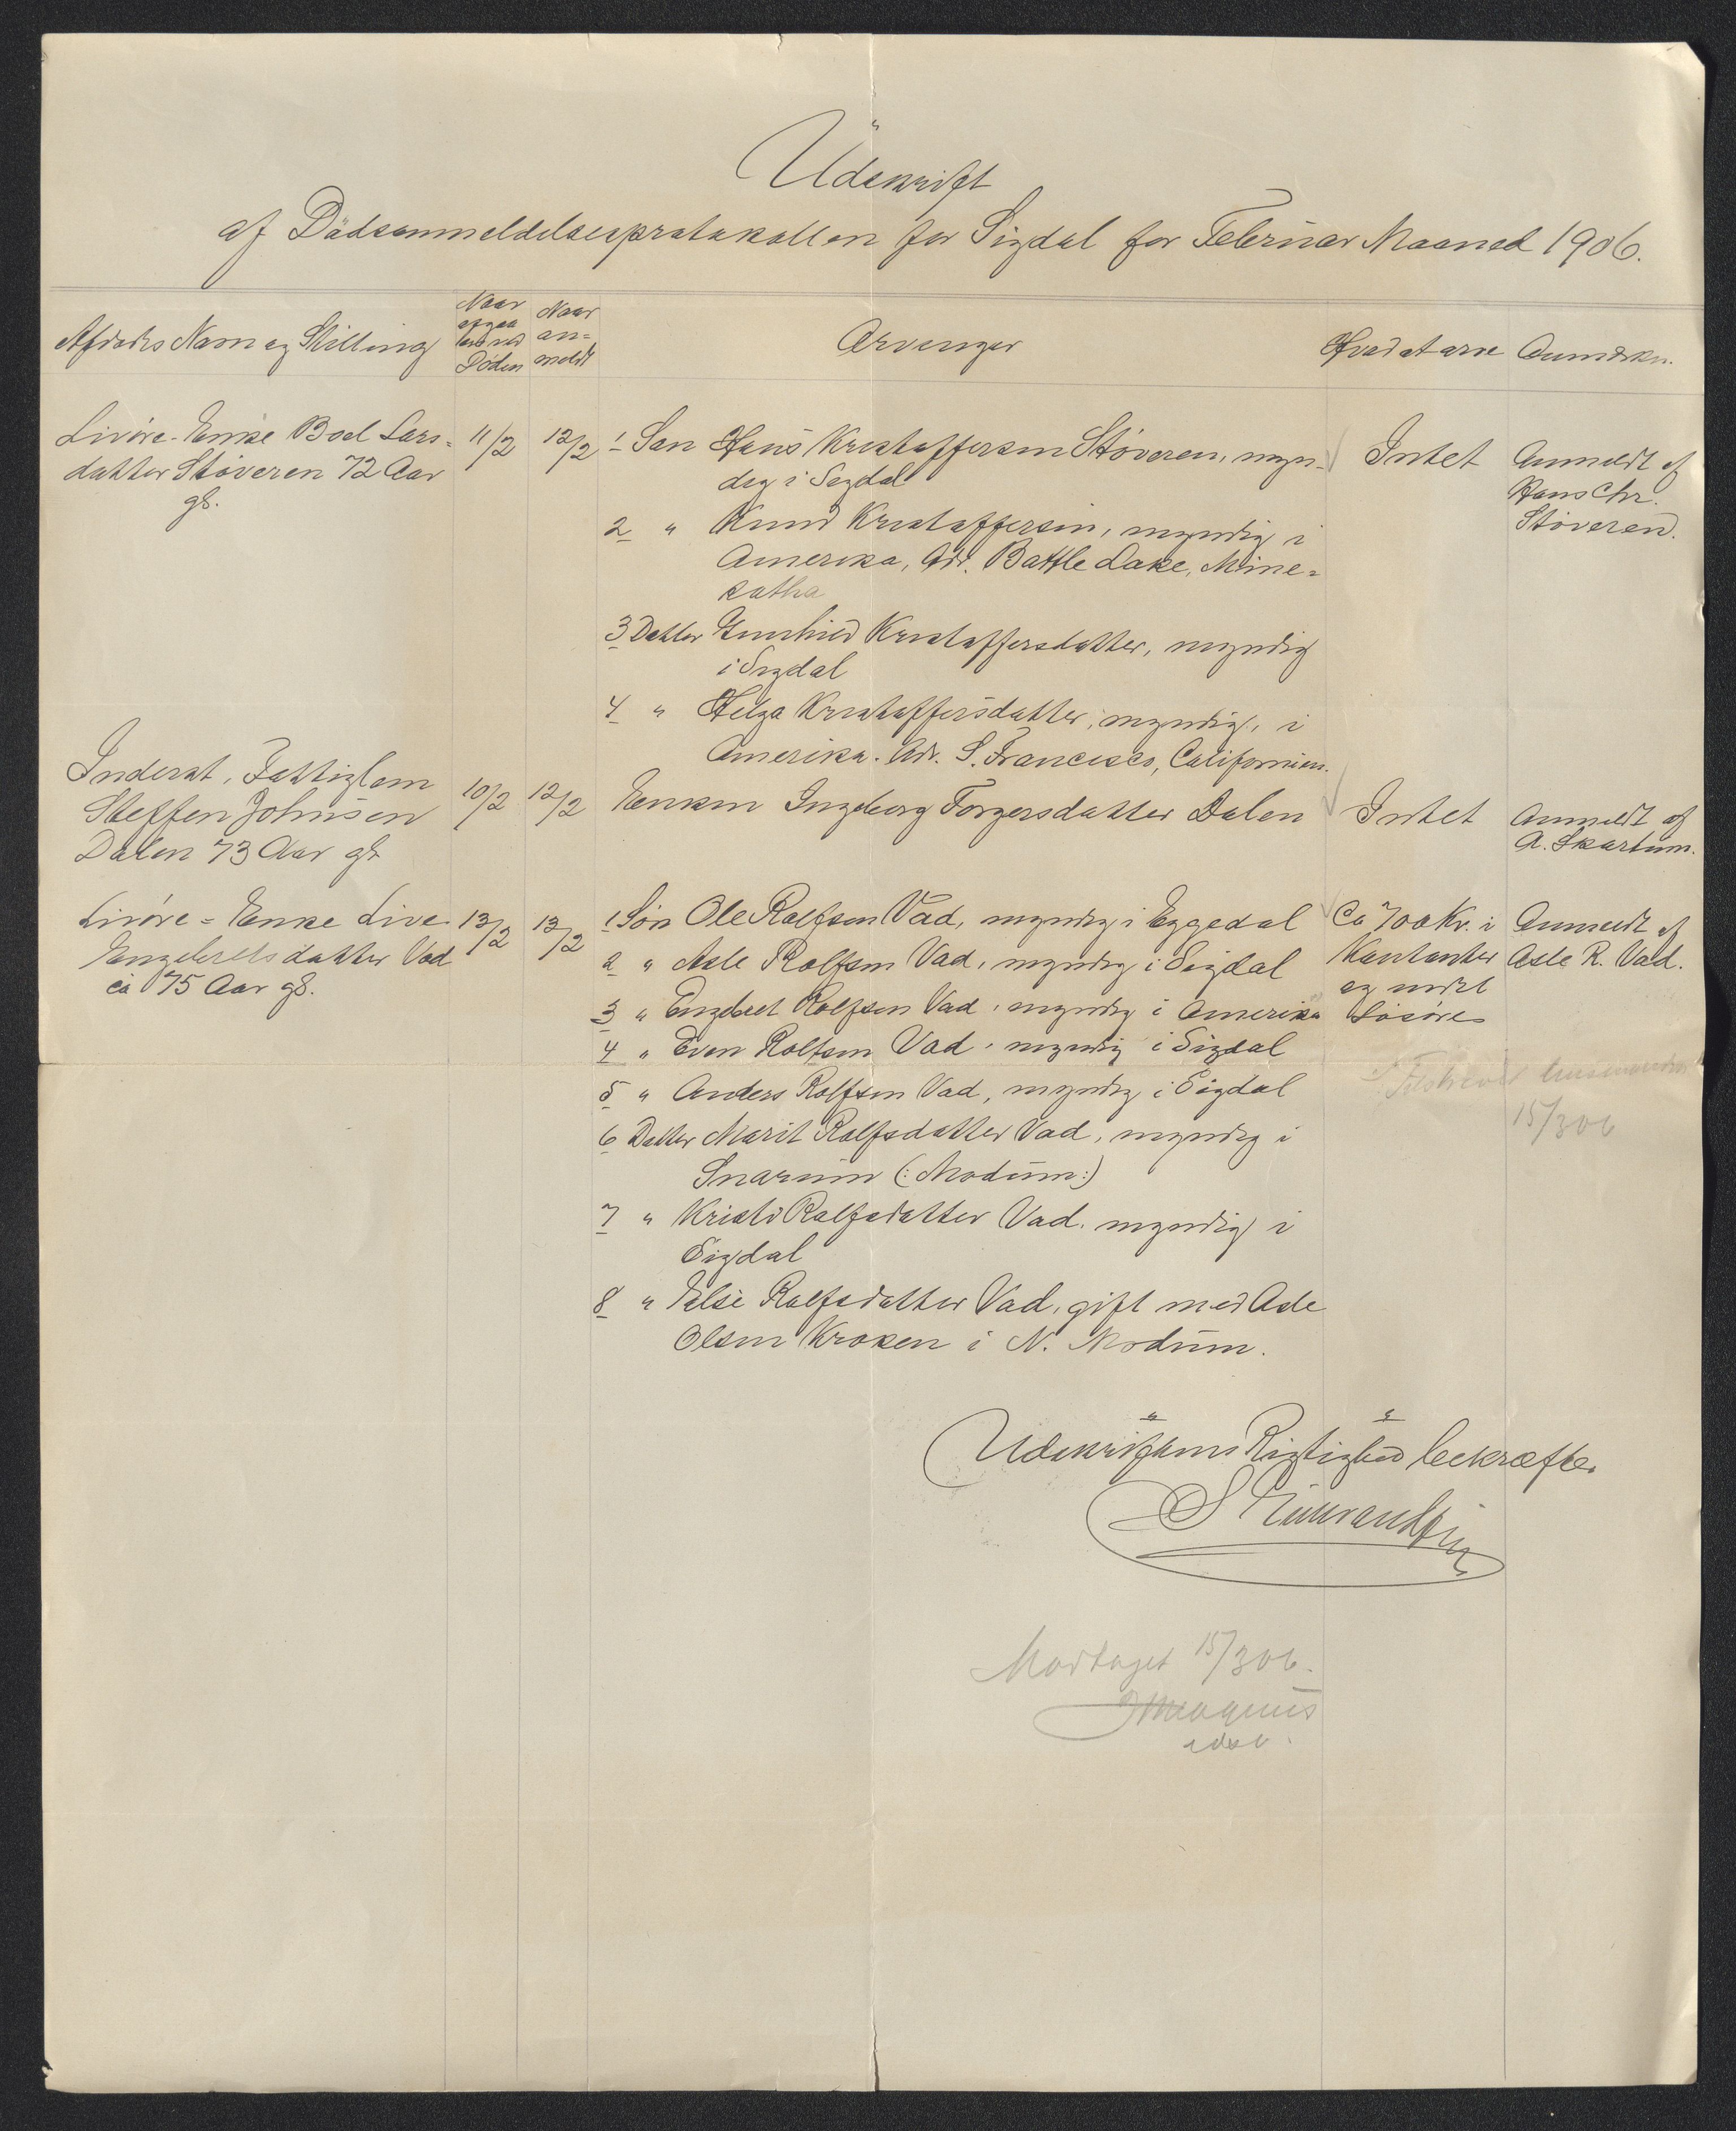 Udskrift
af Dødsanmeldelsesprotokollen for Sigdal for Februar Maaned 1906.
Afdødes Navn og Stilling
Naar
afgaa
ved
Døden
Naar
an-
meldt
Arvinger
Hvad at arve
Anmærkn.
Livøre-Enke Boel Lars-
datter Støveren 72 Aar
gl.
11/2
12/2
1 Søn Hans Kristoffersen Støveren, myn-
dig i Sigdal
2 " Knud Kristoffersen, myndig i
Amerika, Adr. Battle Lake, Mine-
sotha
3 Datter Gunhild Kristoffersdatter, myndig
i Sigdal
4 " Helga Kristoffersdatter, myndig, i
Amerika. Adr. S. Francisco, Californien.
Intet
Anmeldt af
Hans Chr.
Støveren.
Inderst, Fattiglem
Steffen Johnsen
Dalen 73 Aar gl.
10/2
12/2
Enken Ingeborg Torgersdatter Dalen
Intet
Anmeldt af
A. Skartum.
Livøre-Enke Live
Engebretsdatter Vad
ca 75 Aar gl.
13/2
13/2
1 Søn Ole Rolfsen Vad, myndig i Eggedal
2 " Asle Rolfsen Vad, myndig i Sigdal
3 " Engebret Rolfsen Vad, myndig i Amerika
4 " Even Rolfsen Vad, myndig i Sigdal
5 " Anders Rolfsen Vad, myndig i Sigdal
6 Datter Marit Rolfsdatter Vad, myndig i
Snarum (: Modum:)
7 " Kristi Rolfsdatter Vad, myndig i
Sigdal
8 " Else Rolfsdatter Vad, gift med Asle
Olsen Kroken i N. Modum.
Ca 700 Kr. i
Kontanter
og indet
Løsøre
Anmeldt af
Asle R. Vad.
15/3 06
Udskriftens Rigtighed bekræftes
Modtaget 15/3 06.